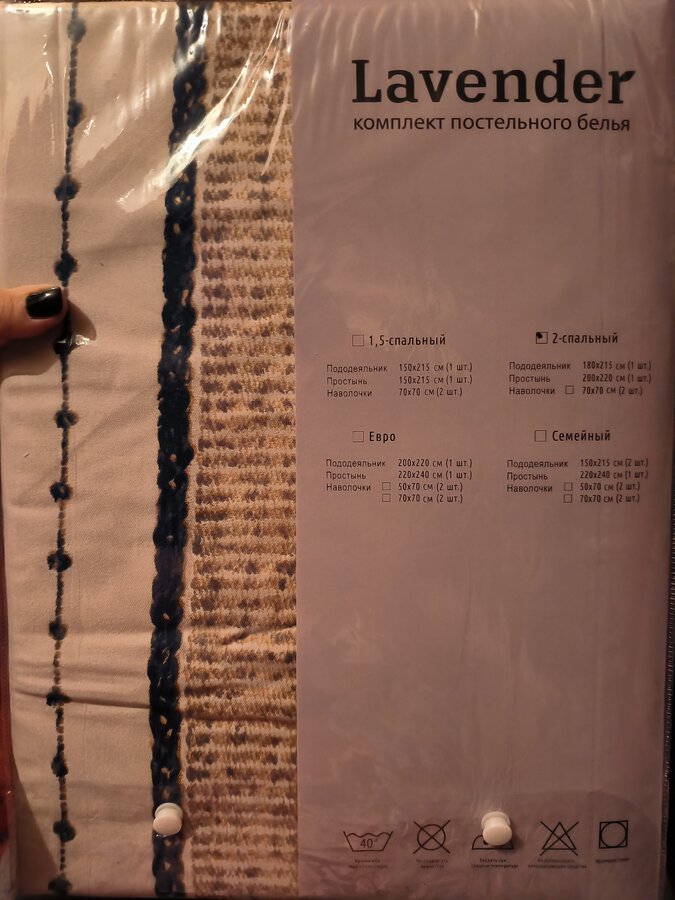 Lavender
комплект постельного белья
1,5-спальный
Пододеяльник 150x215 см (1 шт.)
Простынь 150x215 см (1 шт.)
Наволочки 70x70 см (2 шт.)
2-спальный
Пододеяльник 180x215 см (1 шт.)
Простынь 200x220 см (1 шт.)
Наволочки 70x70 см (2 шт.)
Евро
Пододеяльник 200x220 см (1 шт.)
Простынь 220x240 см (1 шт.)
Наволочки 50x70 см (2 шт.)
70x70 см (2 шт.)
Семейный
Пододеяльник 150x215 см (2 шт.)
Простынь 220x240 см (1 шт.)
Наволочки 50x70 см (2 шт.)
70x70 см (2 шт.)
40°